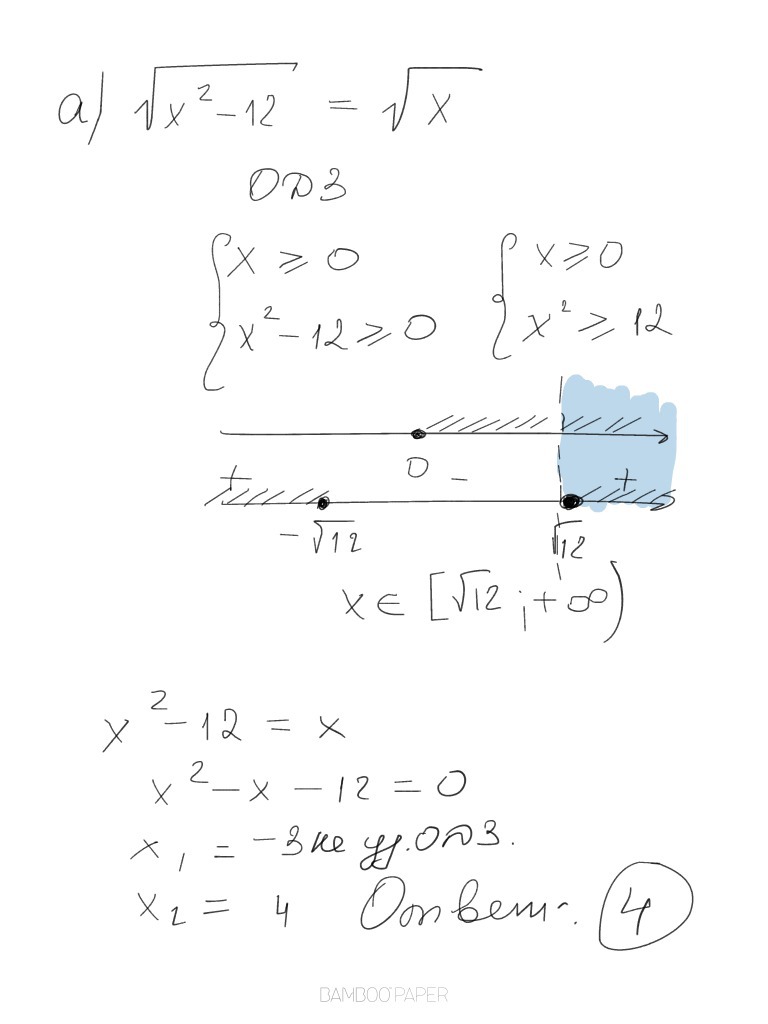 а) √(x² – 12) = √x
ОДЗ
{ x ⩾ 0 { x ⩾ 0
x² – 12 ⩾ 0 x² ⩾ 12
0
+ – +
– √12 √12
x ∈ [√12 ; + ∞)
x² – 12 = x
x² – x – 12 = 0
x₁ = –3 не уд. ОДЗ.
x₂ = 4 Ответ: 4
BAMBOO PAPER